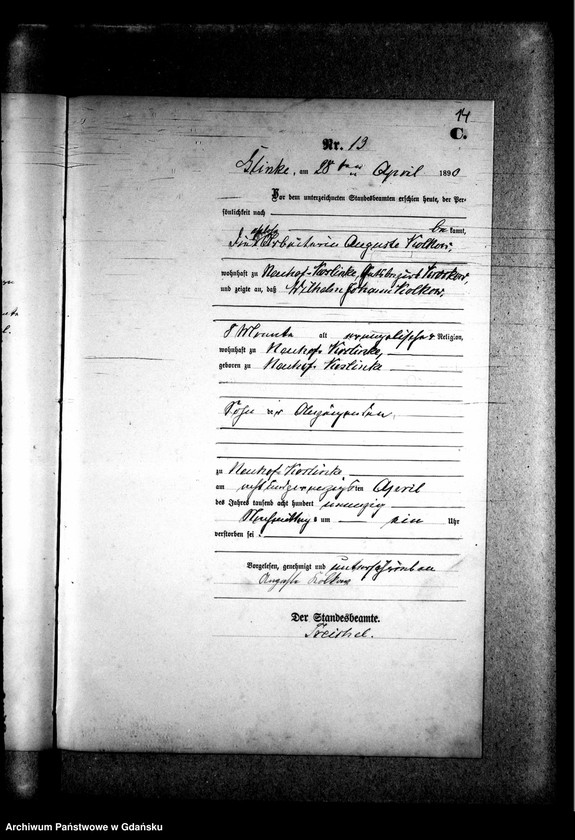 14
C.
Nr. 13
Glinke, am 28ten April 1890
Vor dem unterzeichneten Standesbeamten erschien heute, der Per-
sönlichkeit nach
be kannt,
die Arbeiterin Auguste Kolkow,
wohnhaft zu Neuhof-Karlinke, Gutsbezirk
und zeigte an, daß Wilhelm Johann Kolkow,
8 Monate alt evangelischer Religion,
wohnhaft zu Neuhof-Karlinke,
geboren zu Neuhof-Karlinke
Sohn der Anzeigenden
zu Neuhof-Karlinke
am achtundzwanzigsten April
des Jahres tausend acht hundert neunzig
Nachmittags um ein Uhr
verstorben sei.
Vorgelesen, genehmigt und unterschrieben
Auguste Kolkow
Der Standesbeamte.
Archiwum Państwowe w Gdańsku